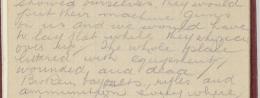 showed ourselves, they would
put their machine guns
on us and we would have
to lay flat while they whipped
over us. The whole place
littered with equipment
wounded, and dead
Broken bayonets, rifles and
ammunition everywhere